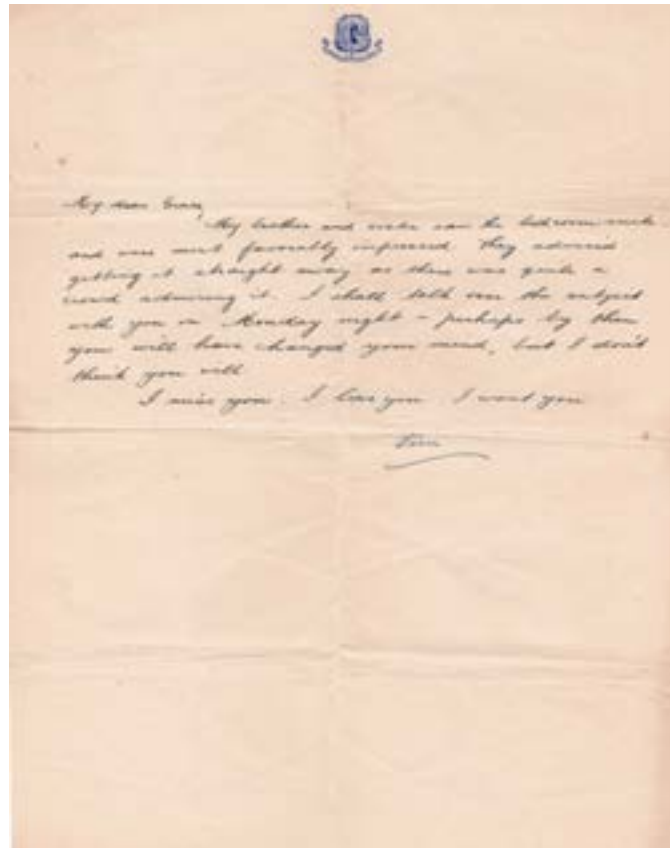 My dear
My brother and saw the bedroom suite
and was most favorably impressed. They advised
getting it straight away as there was quite a
crowd admiring it. I shall talk over the subject
with you on Monday night - perhaps by then
you will have changed your mind, but I don't
think you will
I miss you. I love you. I want you